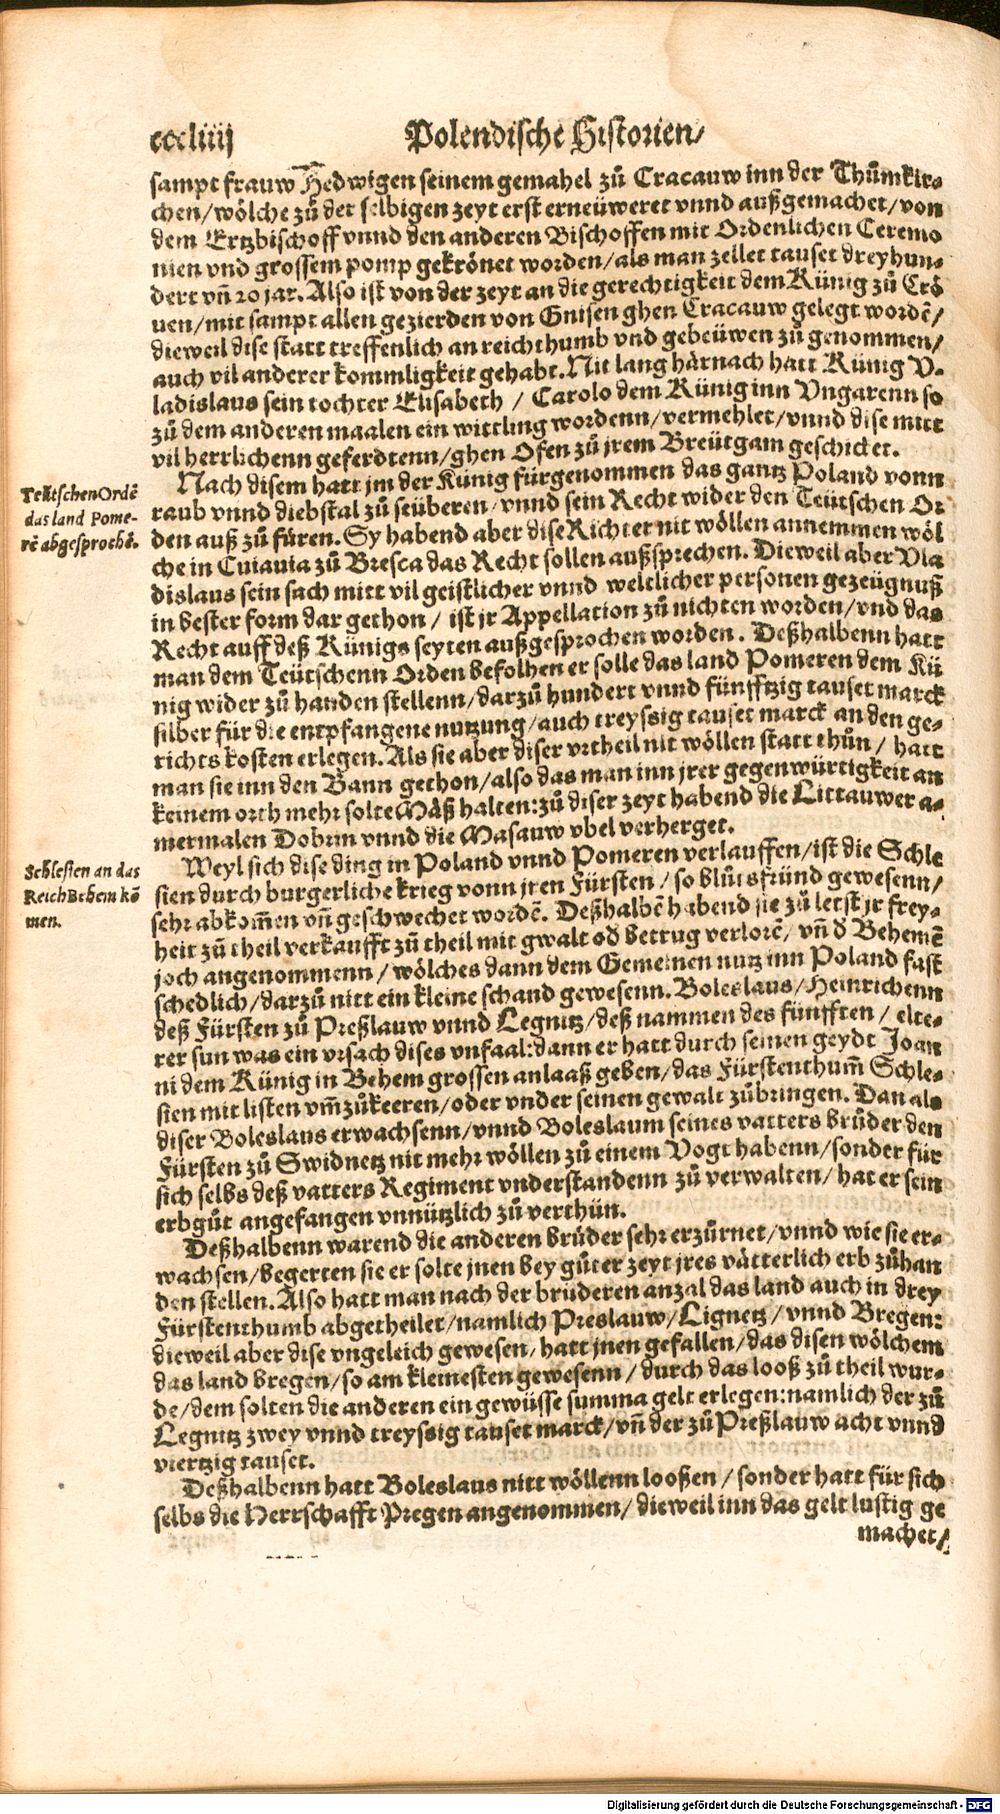 cccliiij
Polendische Historien/
sampt frauw Hedwigen seinem gemahel zů Cracauw inn der Thůmkir-
chen/wölche zů der selbigen zeyt erst erneüweret vnnd außgemachet/von
dem Ertzbischoff vnnd den anderen Bischoffen mit Ordenlichen Ceremo
nien vnd grossem pomp gekrönet worden/als man zellet tauset dreyhun-
dert vñ 20 jar. Also ist von der zeyt an die gerechtigkeit dem Künig zů Crö
nen/mit sampt allen gezierden von Gnisen ghen Cracauw gelegt wordē/
dieweil dise statt treffenlich an reichthumb vnd gebeüwen zů genommen/
auch vil anderer kommligkeit gehabt. Nit lang härnach hatt Künig V-
ladislaus sein tochter Elisabeth / Carolo dem Künig inn Vngarenn so
zů dem anderen maalen ein wittling wordenn/vermehlet/vnnd dise mitt
vil herrlichenn geferdtenn/ghen Ofen zů jrem Breütgam geschicket.
Nach disem hatt jm der Künig fürgenommen das gantz Poland vonn
Teütschen Ordē
das land Pome-
rē abgesprochē.
raub vnnd diebstal zů seüberen/vnnd sein Recht wider den Teütschen Or
den auß zů füren. Sy habend aber dise Richter nit wöllen annemmen wöl
che in Cuiauia zů Bresca das Recht sollen außsprechen. Dieweil aber Vla
dislaus sein sach mitt vil geistlicher vnnd weltlicher personen gezeügnuß
in bester form dar gethon / ist jr Appellation zů nichten worden/vnd das
Recht auff deß Künigs seyten außgesprochen worden. Deßhalbenn hatt
man dem Teütschenn Orden befolhen er solle das land Pomeren dem Kü
nig wider zů handen stellenn/darzů hundert vnnd fünfftzig tauset marck
silber für die entpfangene nutzung/auch treyssig tauset marck an den ge-
richts kosten erlegen. Als sie aber diser vrtheil nit wöllen statt thůn / hatt
man sie inn den Bann gethon/also das man inn jrer gegenwürtigkeit an
keinem orth mehr solte Mäß halten: zů diser zeyt habend die Littauwer a-
mermalen Dobrin vnnd die Masauw vbel verherget.
Schlesien an das
Reich Behem kō
men.
Weyl sich dise ding in Poland vnnd Pomeren verlauffen/ist die Schle
sien durch burgerliche krieg vonn jren Fürsten / so blůtsfründ gewesenn/
sehr abkom̄en vñ geschwechet wordē. Deßhalbē habend sie zů letst jr frey-
heit zů theil verkaufft zů theil mit gwalt od betrug verlorē/ vñ d Behemē
joch angenommenn / wölches dann dem Gemeinen nutz inn Poland fast
schedlich/darzů nitt ein kleine schand gewesenn. Boleslaus/Heinrichenn
deß Fürsten zů Preßlauw vnnd Legnitz/deß nammen des fünfften / elte-
rer sun was ein vrsach dises vnfaal: dann er hatt durch seinen geydt Joan
ni dem Künig in Behem grossen anlaaß geben/das Fürstenthum̄ Schle-
sien mit listen vm̄zůkeeren/oder vnder seinen gewalt zůbringen. Dan als
diser Boleslaus erwachsenn/vnnd Boleslaum seines vatters brůder den
Fürsten zů Swidnetz nit mehr wöllen zů einem Vogt habenn/sonder für
sich selbs deß vatters Regiment vnderstandenn zů verwalten/hat er sein
erbgůt angefangen vnnützlich zů verthün.
Deßhalbenn warend die anderen brůder sehr erzürnet/vnnd wie sie er-
wachsen/begerten sie er solte jnen bey gůter zeyt jres vätterlich erb zůhan
den stellen. Also hatt man nach der brüderen anzal das land auch in drey
Fürstenthumb abgetheilet/namlich Preslauw/Lignetz / vnnd Bregen:
dieweil aber dise vngeleich gewesen/hatt jnen gefallen/das disen wölchem
das land bregen/so am kleinesten gewesenn / durch das looß zů theil wur-
de/dem solten die anderen ein gewüsse summa gelt erlegen: namlich der zů
Legnitz zwey vnnd treyssig tauset marck/vñ der zů Preßlauw acht vnnd
viertzig tauset.
Deßhalbenn hatt Boleslaus nitt wöllenn looßen / sonder hatt für sich
selbs die Herrschafft Pregen angenommen/ dieweil inn das gelt lustig ge
machet/
Digitalisierung gefördert durch die Deutsche Forschungsgemeinschaft - DFG